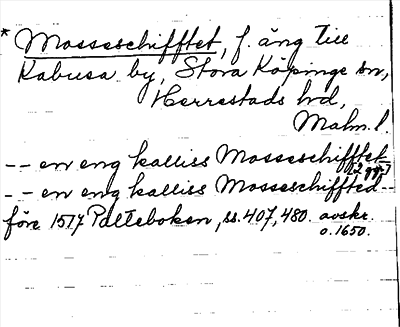 * Mosseschifftet, f. äng till
Kabusa by, Stora Köpinge sn,
Herrestads hd,
Malm. l.
-- en eng kalliss Mosseschifftet
[2 ggr]
-- en eng kalliss Mosseschiffted --
före 1517 Palteboken, ss. 407, 480. avskr.
o. 1650.